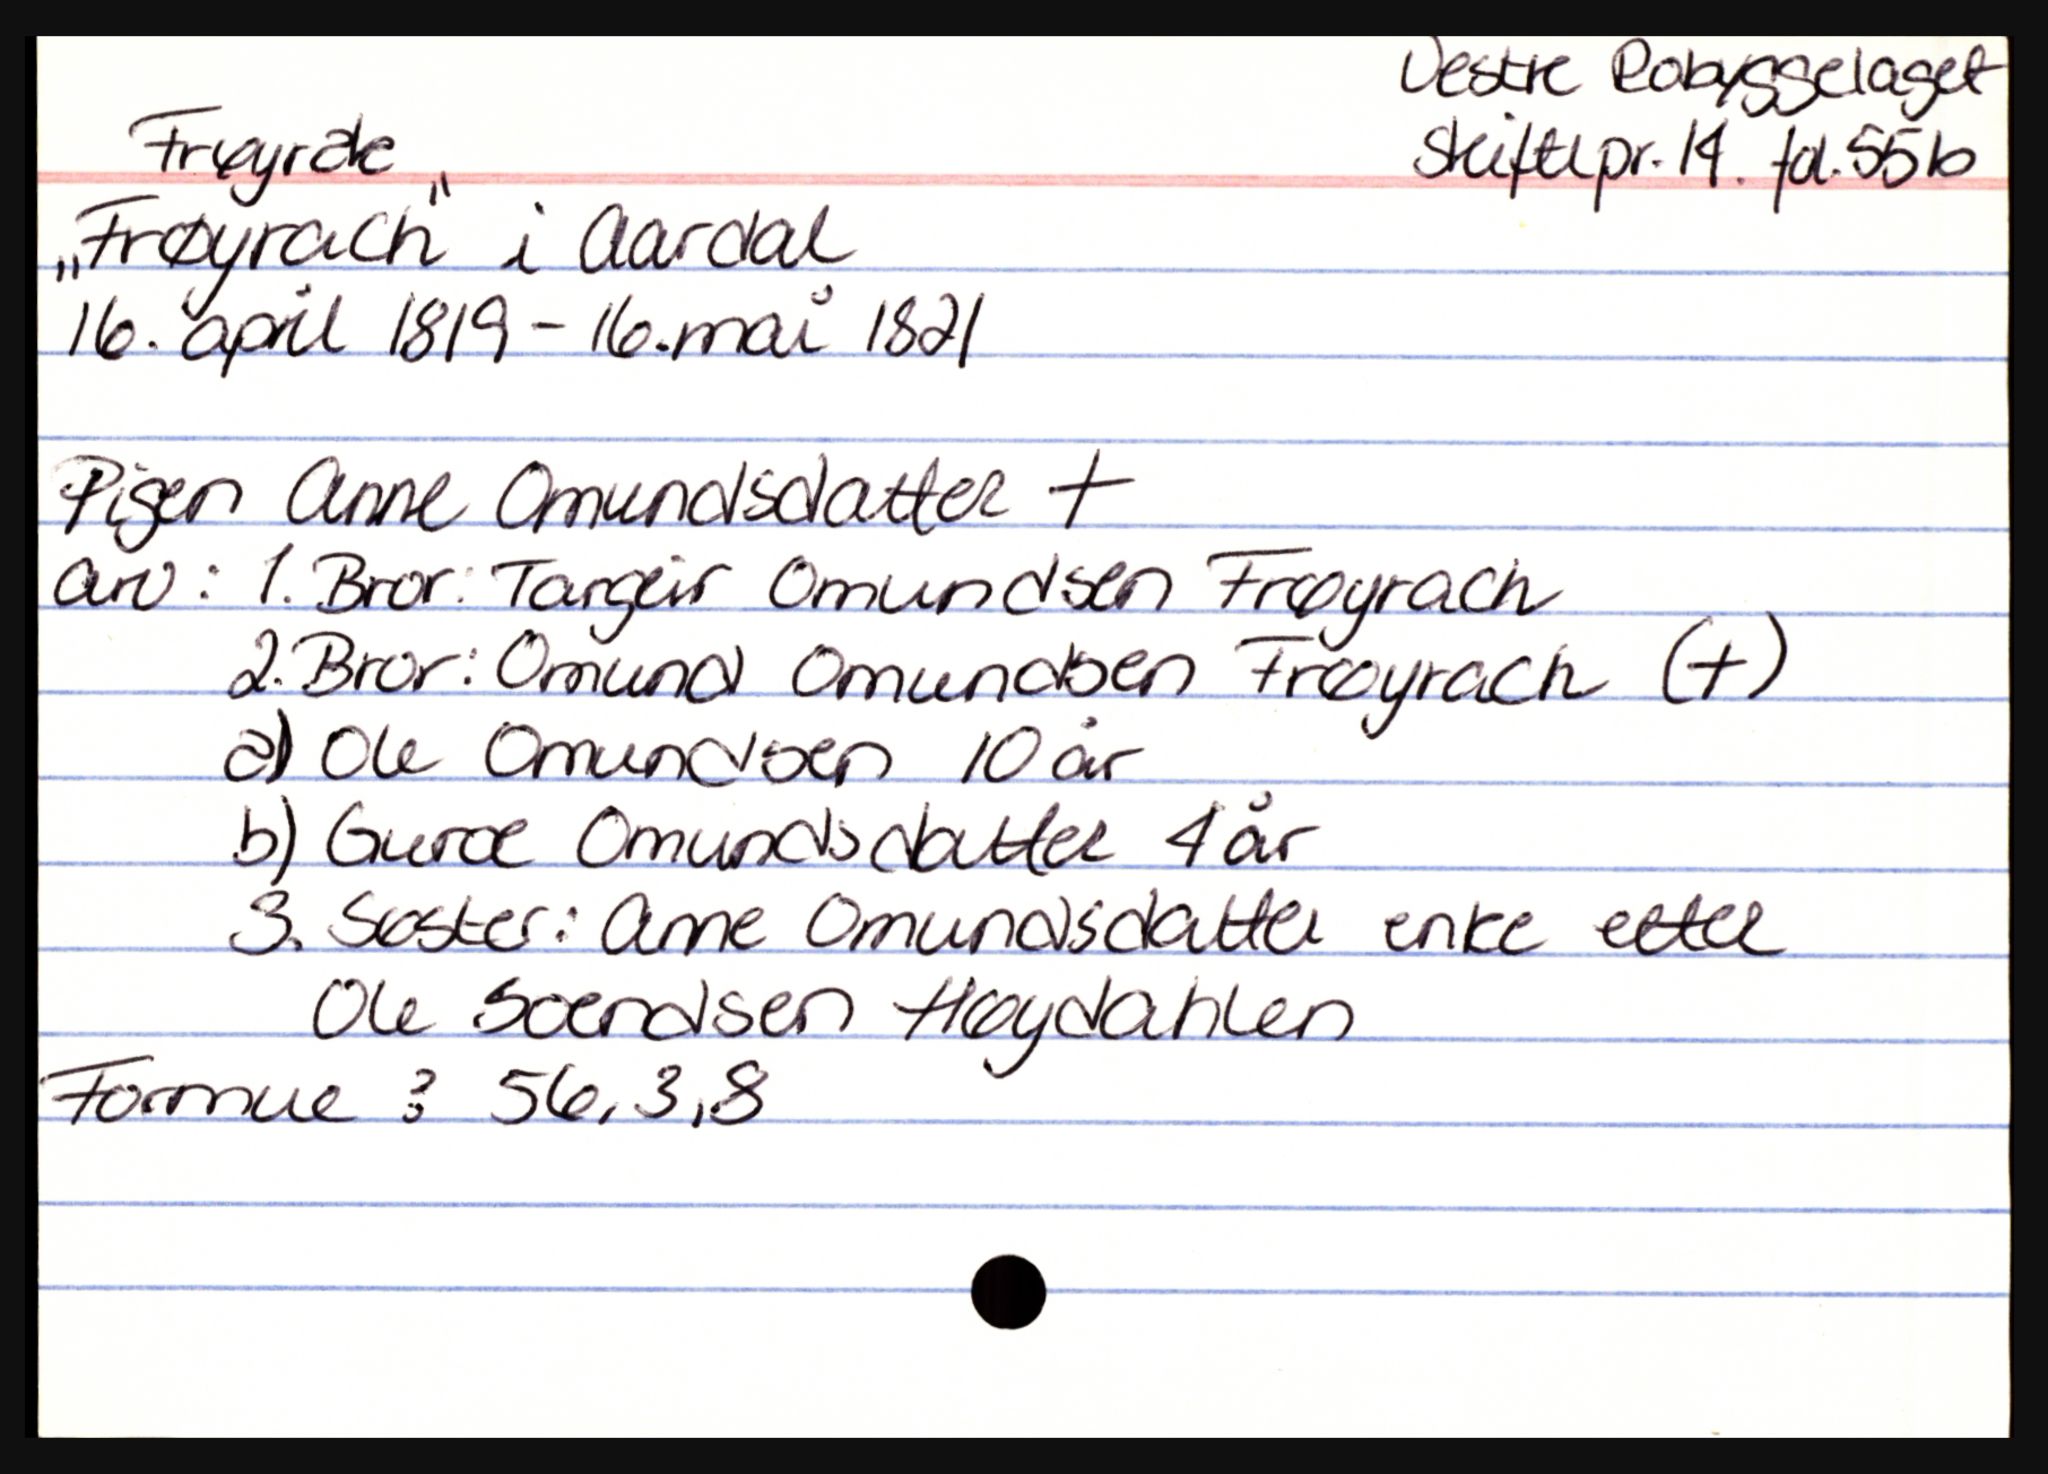 Vestre Robyggelaget
Skiftepr. 14. fol. 55b
Frøyråk
„Frøyrach" i Aardal
16. april 1819 - 16. mai 1821
Pigen Anne Omundsdatter +
Arv: 1. Bror: Targeir Omundsen Frøyrach
2. Bror: Omund Omundsen Frøyrach (+)
a) Ole Omundsen 10 år
b) Guroe Omundsdatter 4 år
3. Søster: Anne Omundsdatter enke etter
Ole Soendsen Høydahlen
Formue : 56, 3, 8